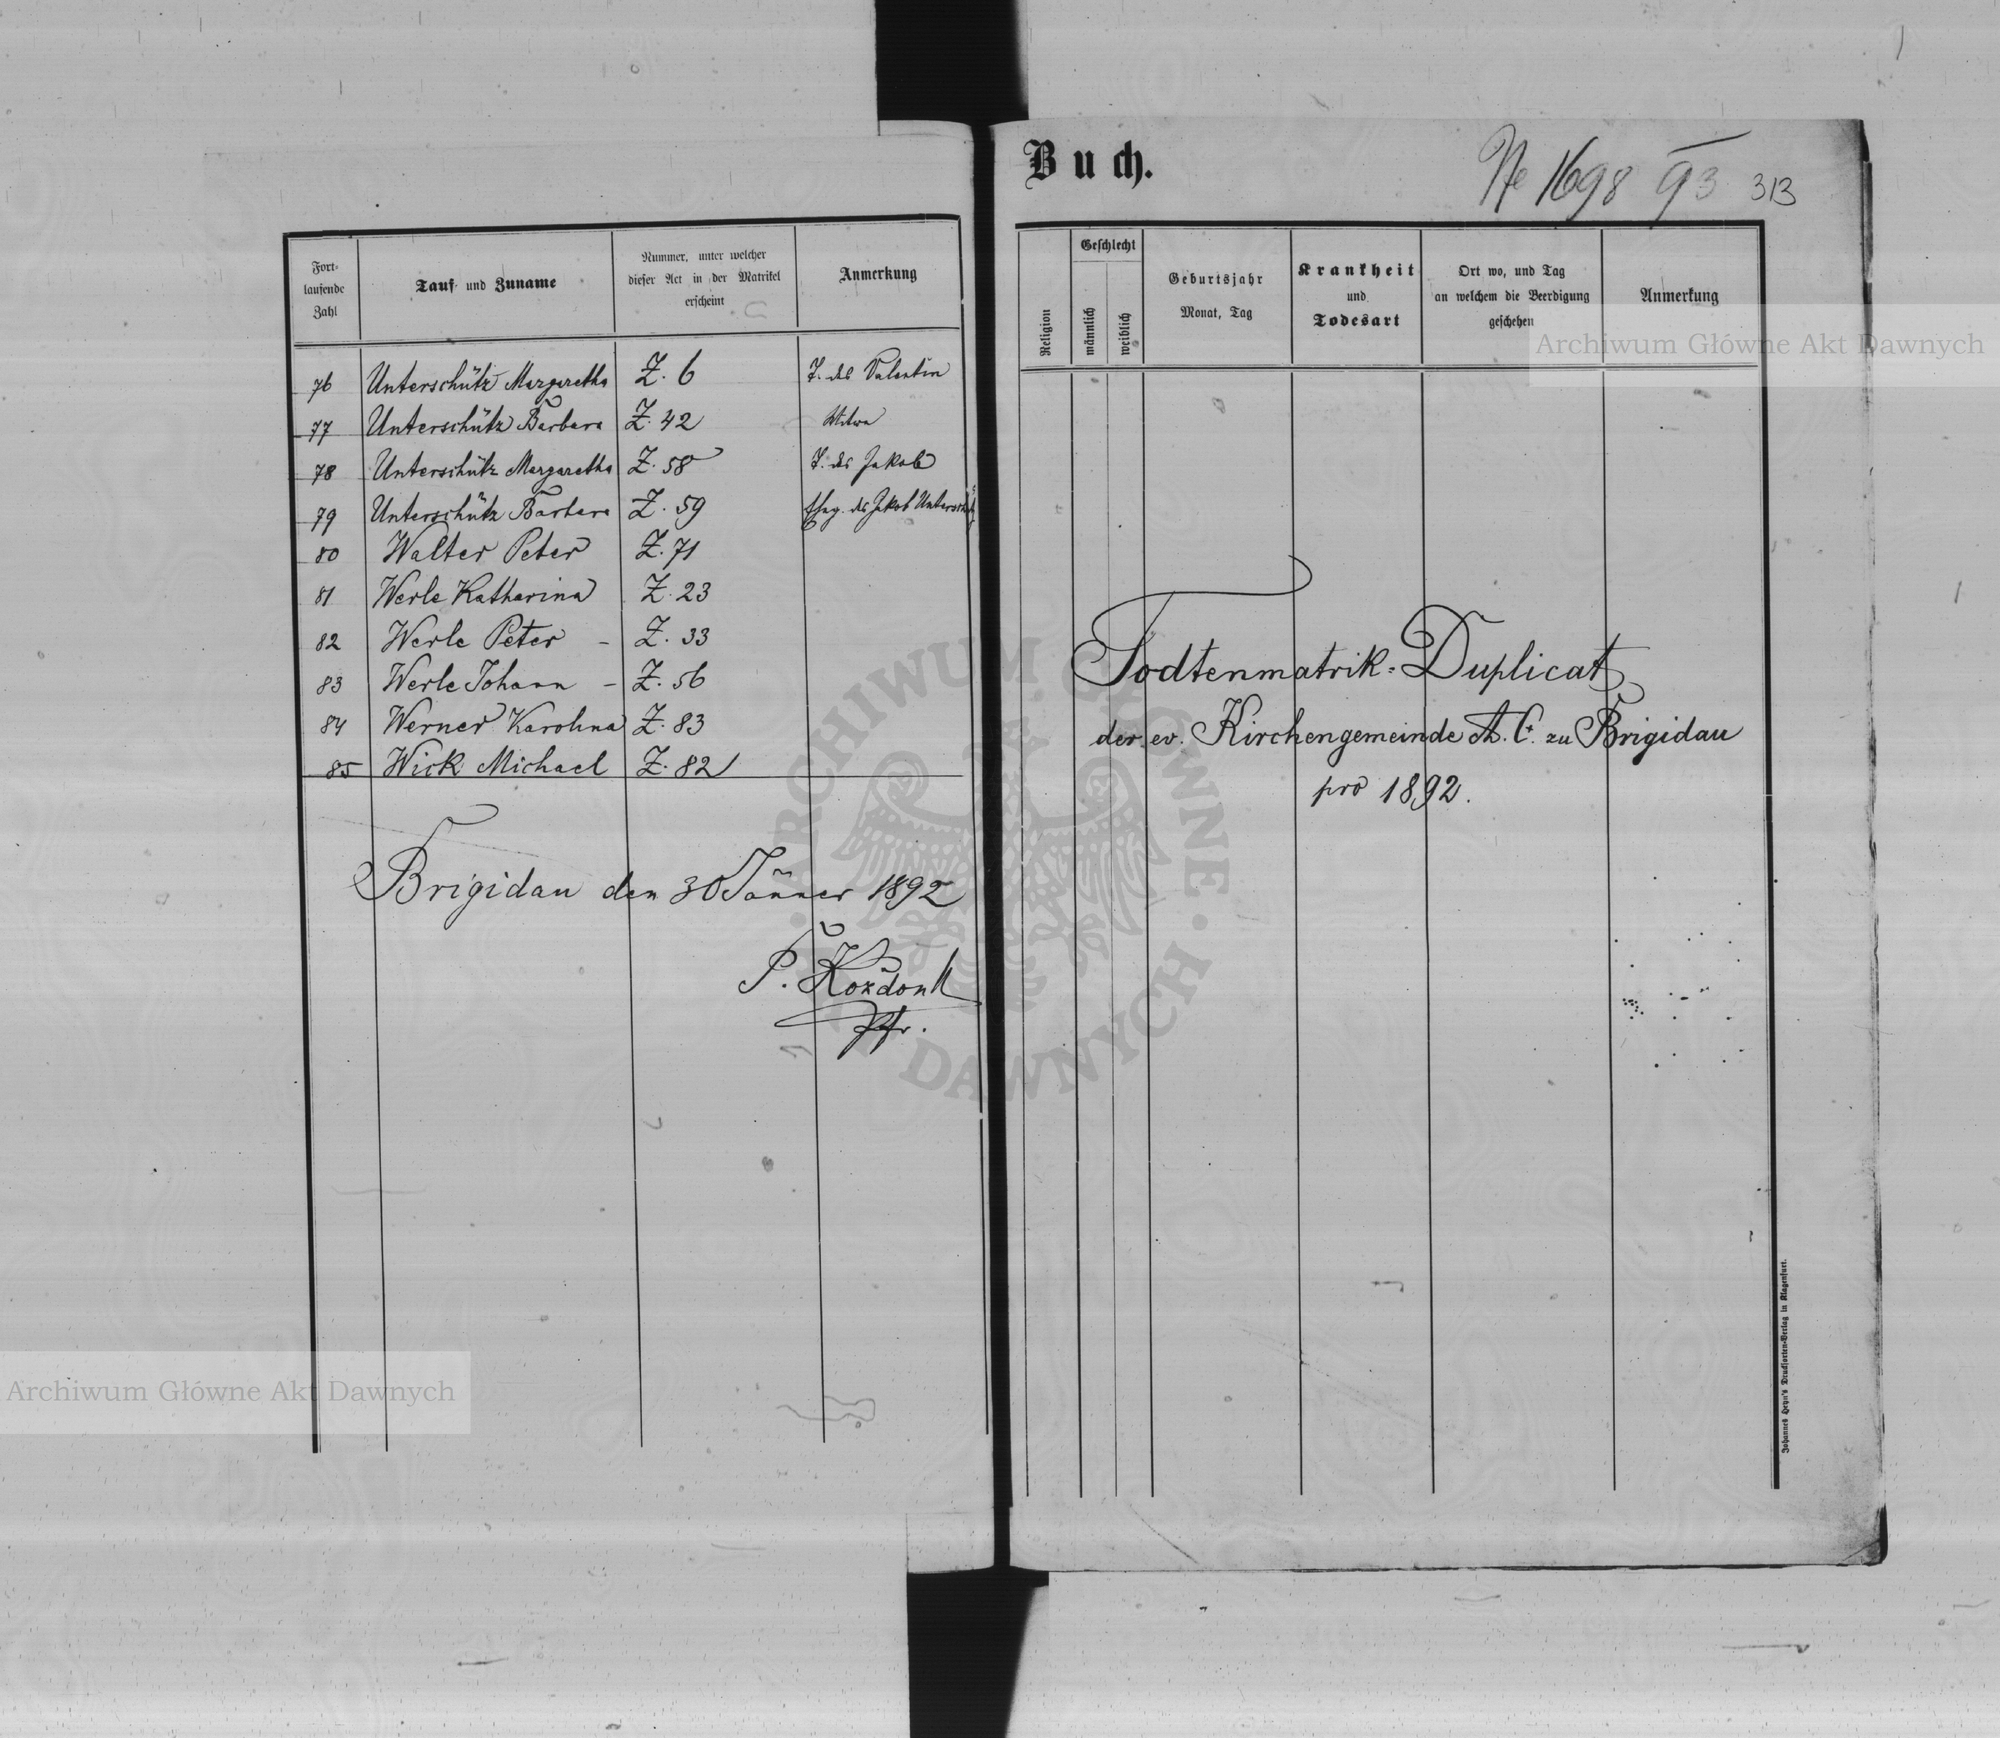 Fort-
laufende
Zahl
Tauf- und Zuname
Nummer, unter welcher
dieser Act in der Matrikel
erscheint
Anmerkung
76 Unterschütz Margaretha Z. 6 T. des Valentin
77 Unterschütz Barbara Z. 42 Witwe
78 Unterschütz Margaretha Z. 58 T. des Jakob
79 Unterschütz Barbara Z. 59 Eheg. des Jakob Unterschütz
80 Walter Peter Z. 71
81 Werle Katharina Z. 23
82 Werle Peter – Z. 33
83 Werle Johann – Z. 56
84 Werner Karolina Z. 83
85 Wick Michael Z. 82
Brigidau den 30 Jänner 1892
Pfr.
Buch.
No 1698 93 313
Religion
Geschlecht
männlich
weiblich
Geburtsjahr
Monat, Tag
Krankheit
und
Todesart
Ort wo, und Tag
an welchem die Beerdigung
geschehen
Anmerkung
Todtenmatrik-Duplicat
der ev. Kirchengemeinde A. C. zu Brigidau
pro 1892.
Johannes Heyn's Drucksorten-Verlag in Klagenfurt.
Archiwum Główne Akt Dawnych
Archiwum Główne Akt Dawnych
ARCHIWUM GŁÓWNE AKT DAWNYCH